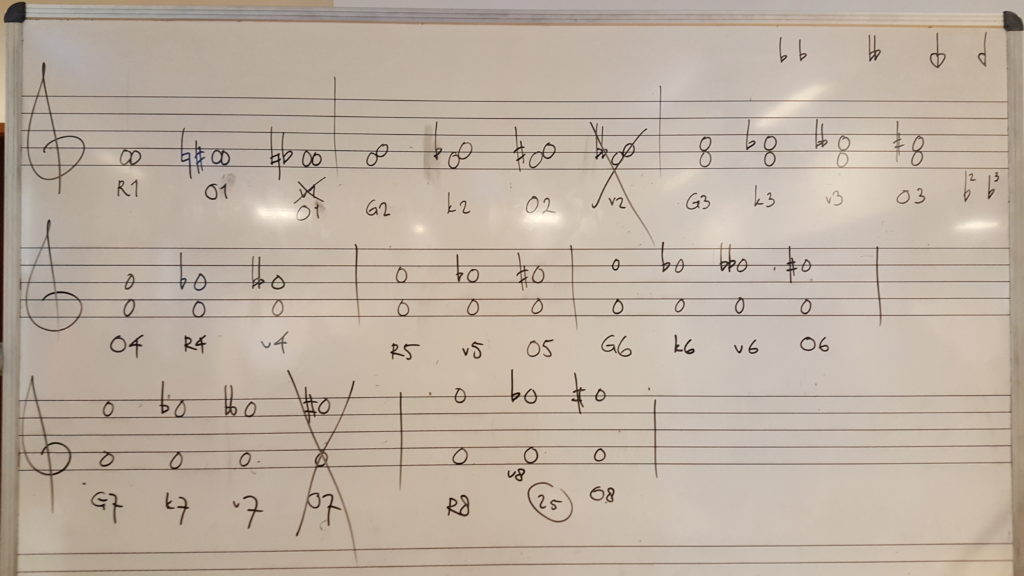 R1 O1 O1 G2 k2 O2 v2 G3 k3 v3 O3 b2 b3
O4 R4 v4 R5 v5 O5 G6 k6 v6 O6
G7 k7 v7 O7 R8 v8 25 O8